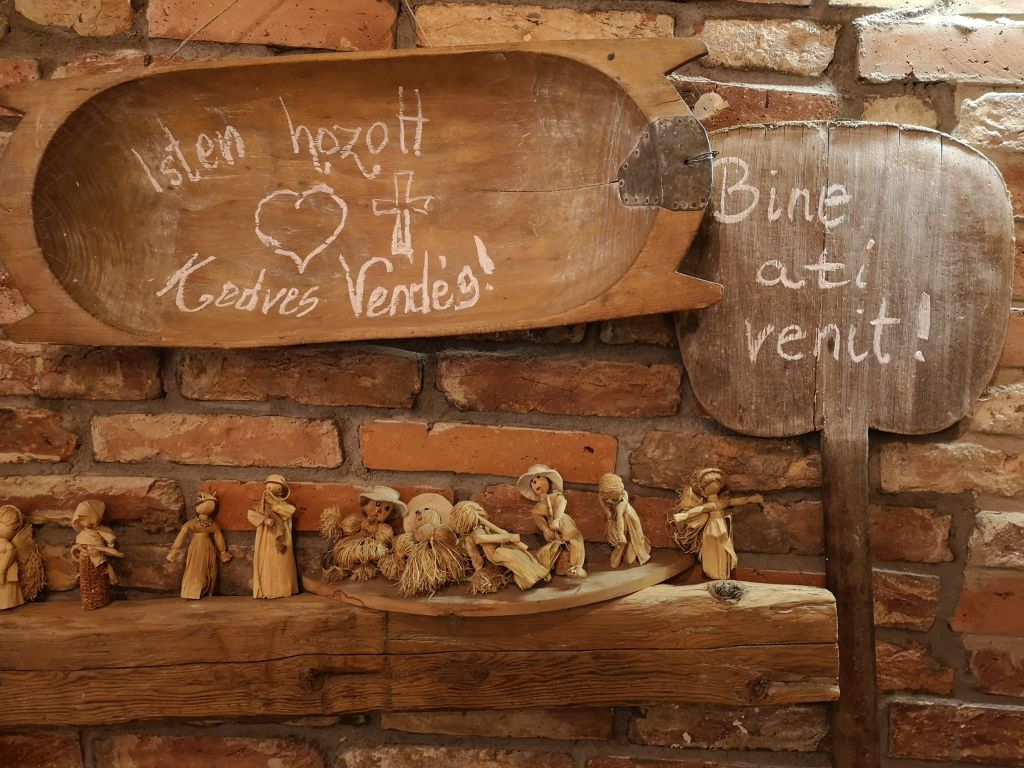 Isten hozott
Kedves Vendég!
Bine
ati
venit!